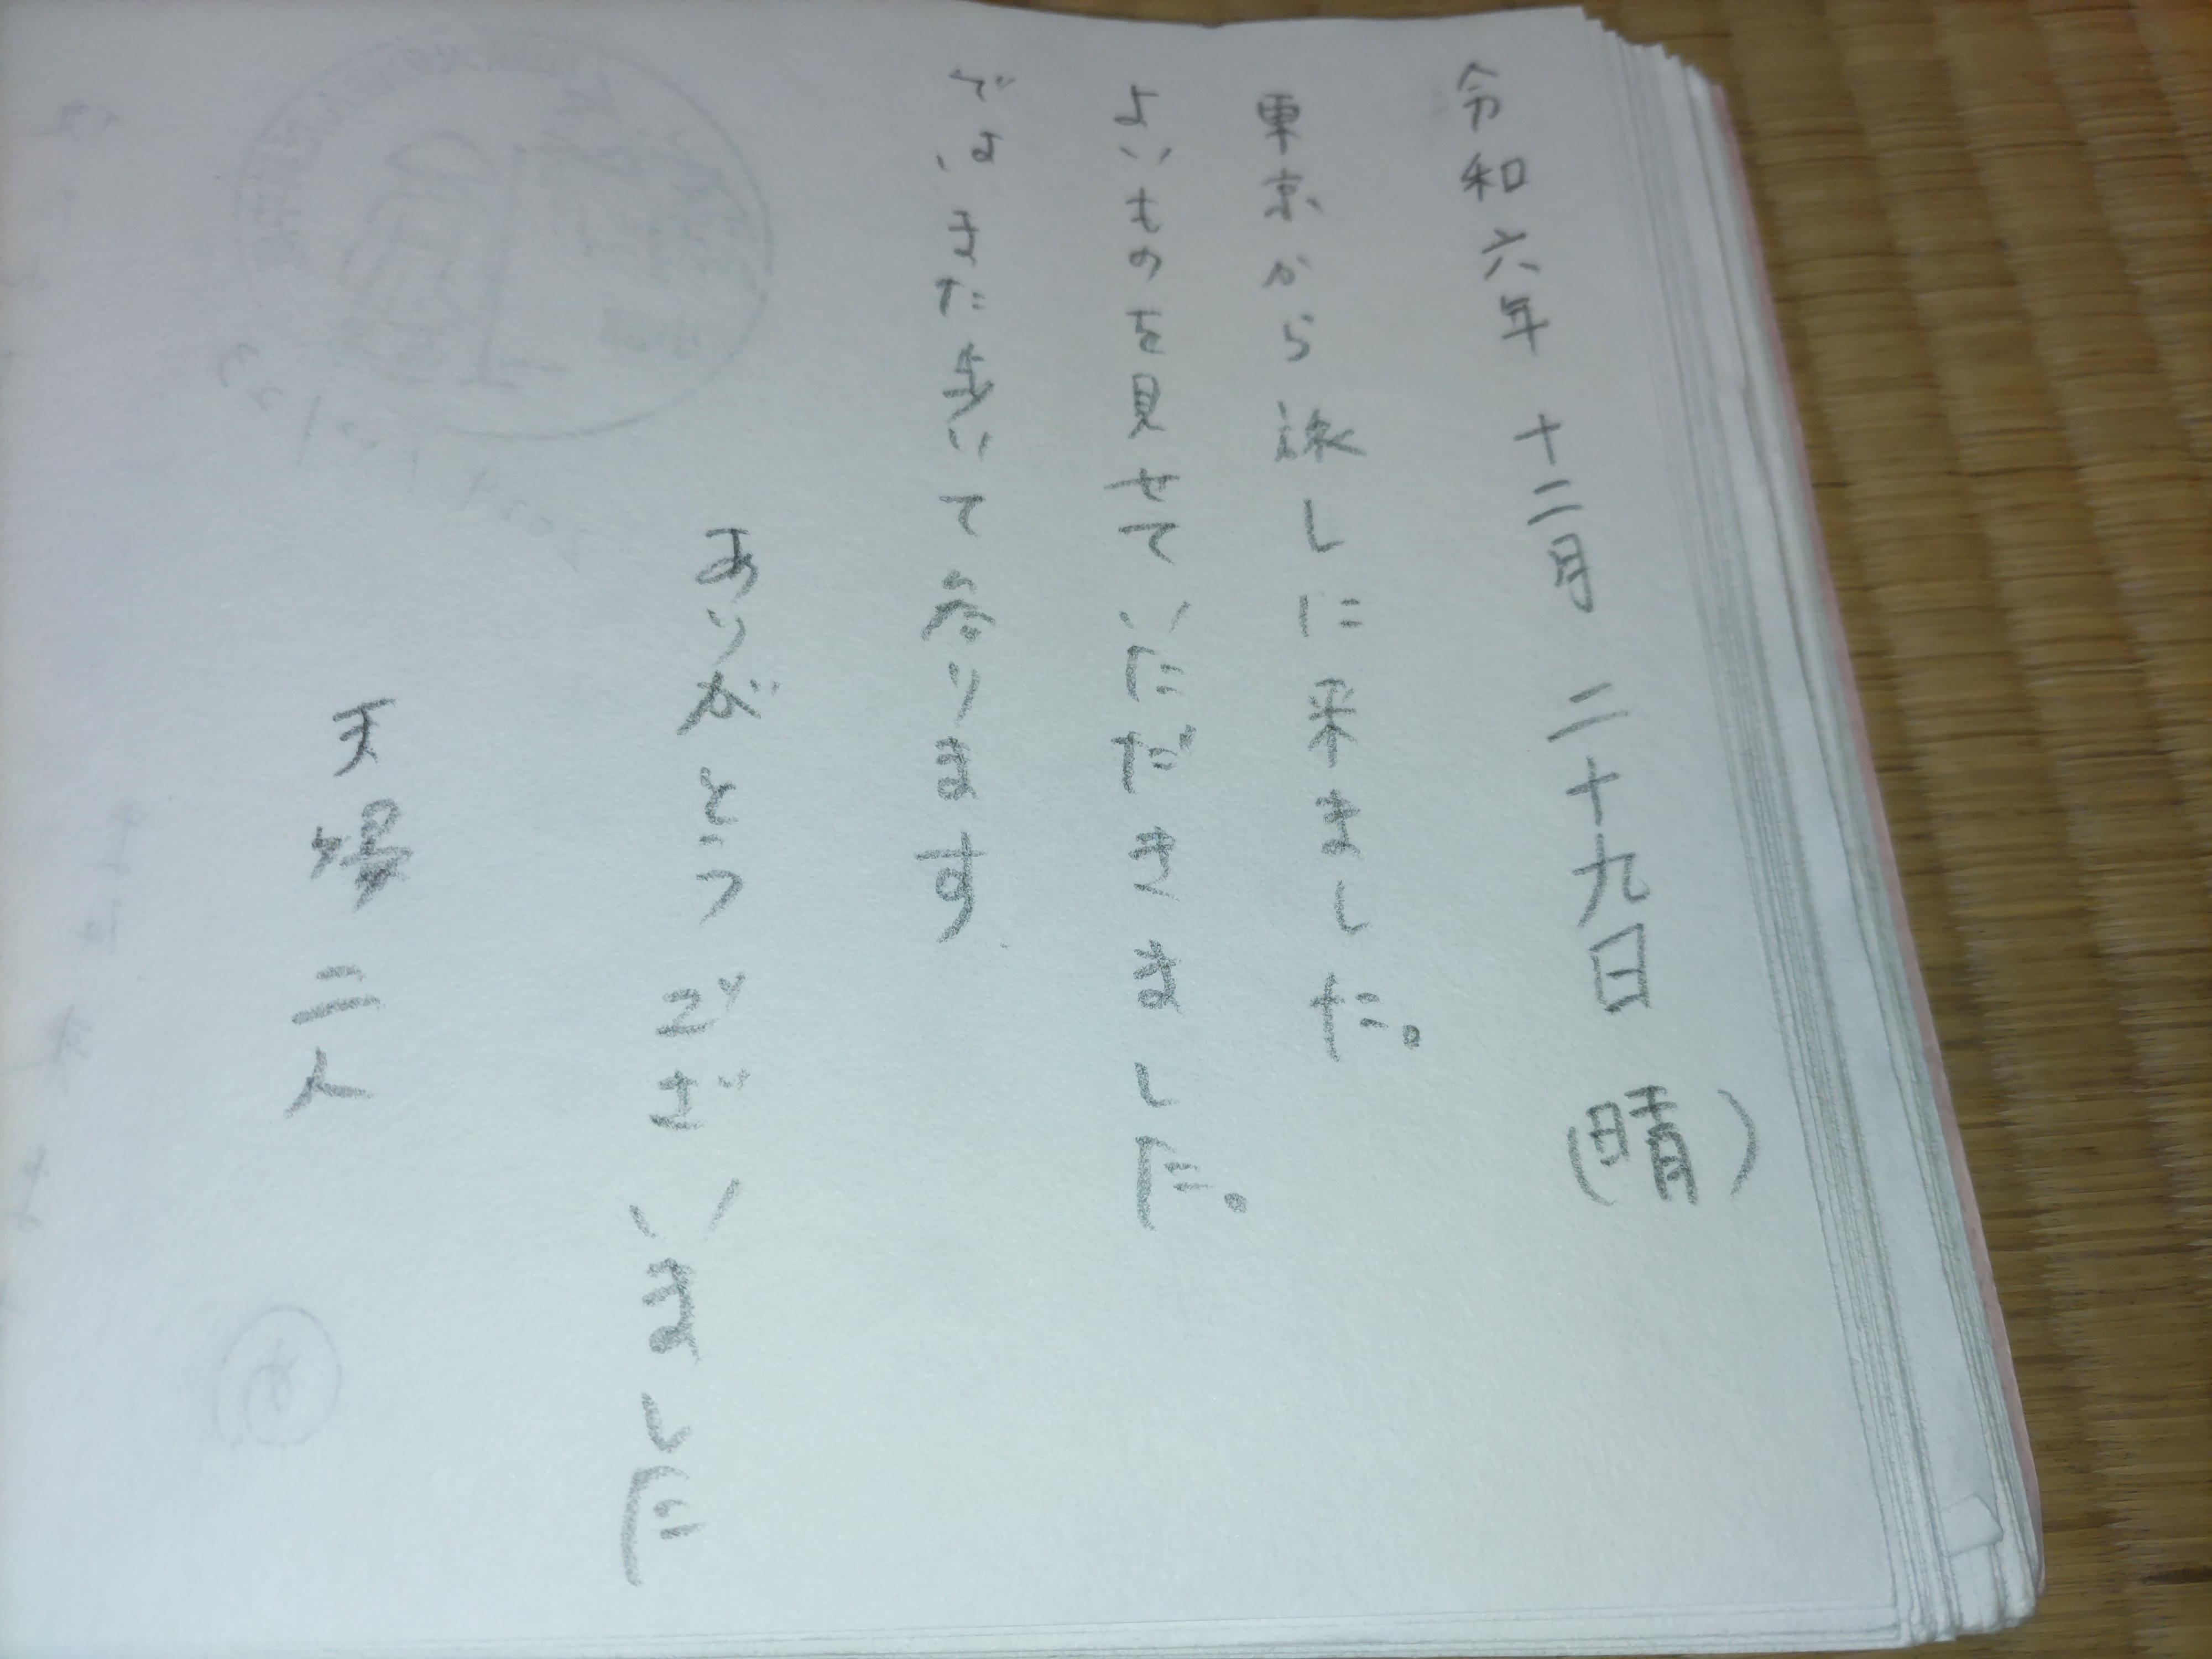 令和六年 十二月 二十九日 (晴)
東京から旅しに来ました。
よいものを見せていただきました。
ではまた歩いて参ります
ありがとうございました
天場 二人